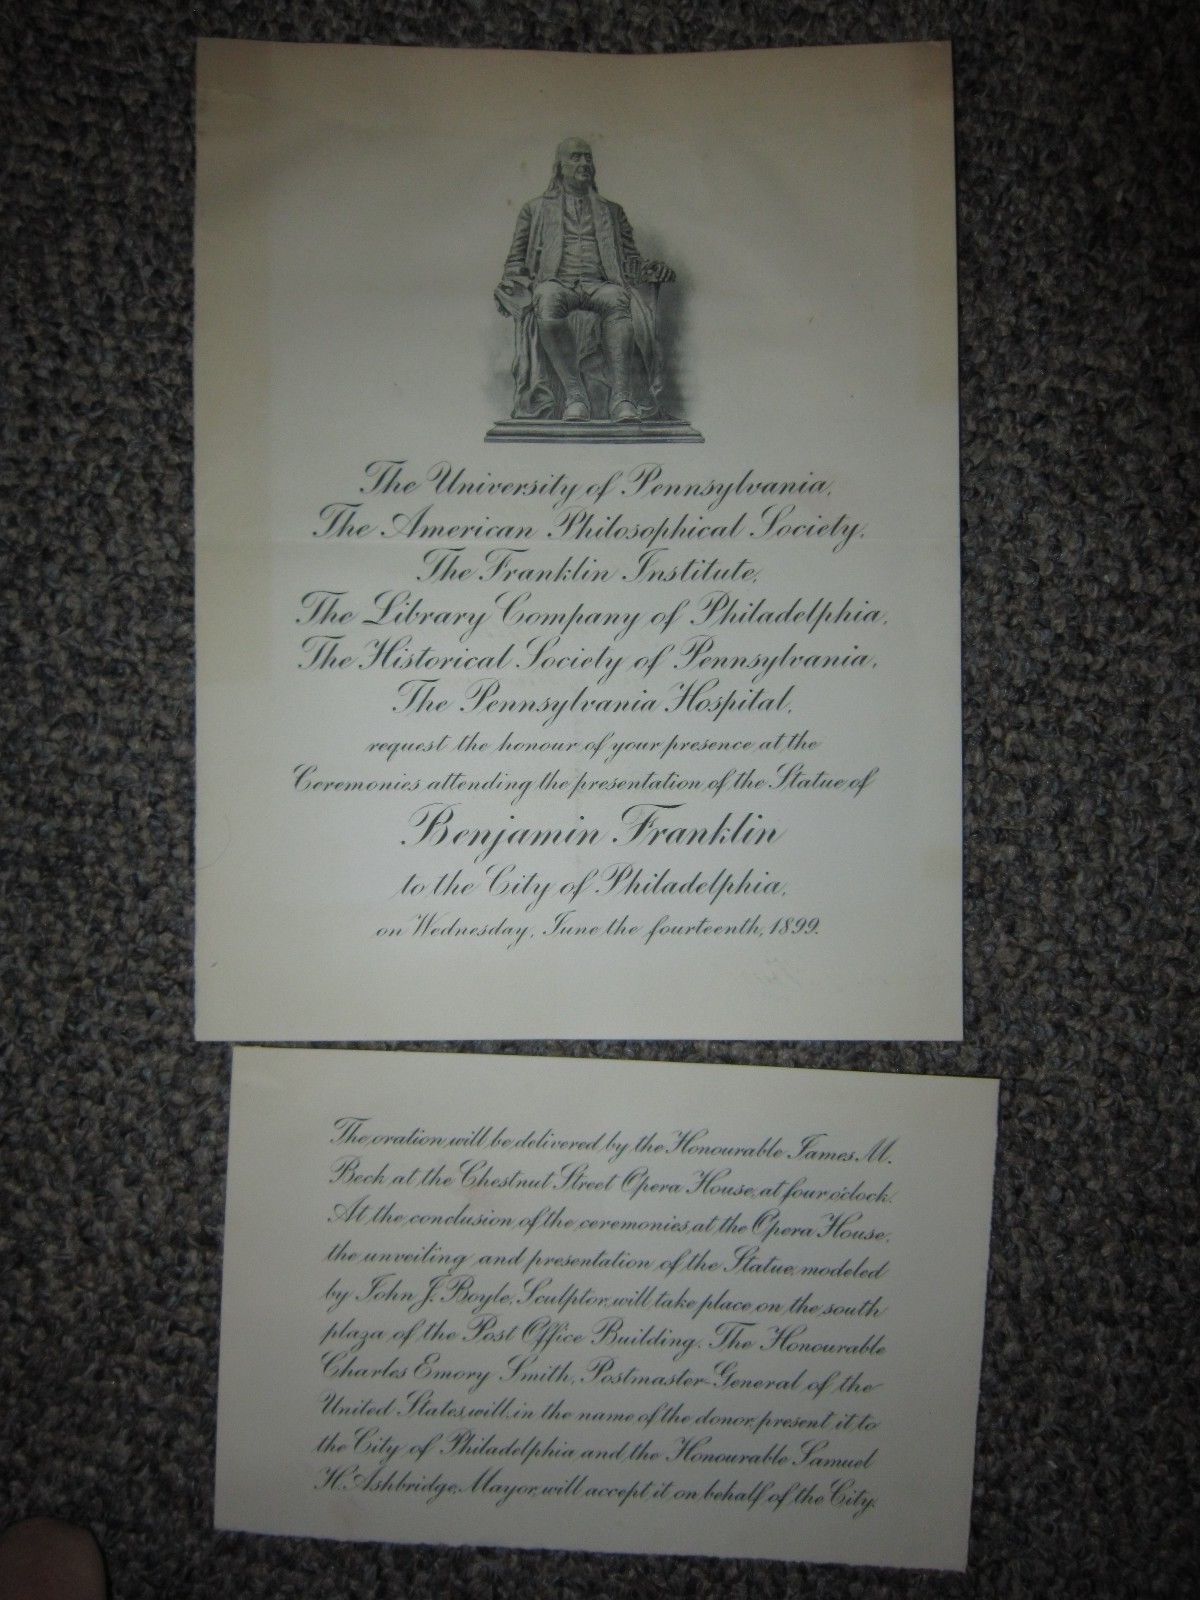 The University of Pennsylvania,
The American Philosophical Society,
The Franklin Institute,
The Library Company of Philadelphia,
The Historical Society of Pennsylvania,
The Pennsylvania Hospital,
request the honour of your presence at the
Ceremonies attending the presentation of the Statue of
Benjamin Franklin
to the City of Philadelphia,
on Wednesday, June the fourteenth, 1899.
The oration will be delivered by the Honourable James M.
Beck at the Chestnut Street Opera House, at four o'clock.
At the conclusion of the ceremonies at the Opera House,
the unveiling and presentation of the Statue, modeled
by John J. Boyle, Sculptor, will take place on the south
plaza of the Post Office Building. The Honourable
Charles Emory Smith, Postmaster-General of the
United States, will, in the name of the donor, present it to
the City of Philadelphia and the Honourable Samuel
H. Ashbridge, Mayor, will accept it on behalf of the City.